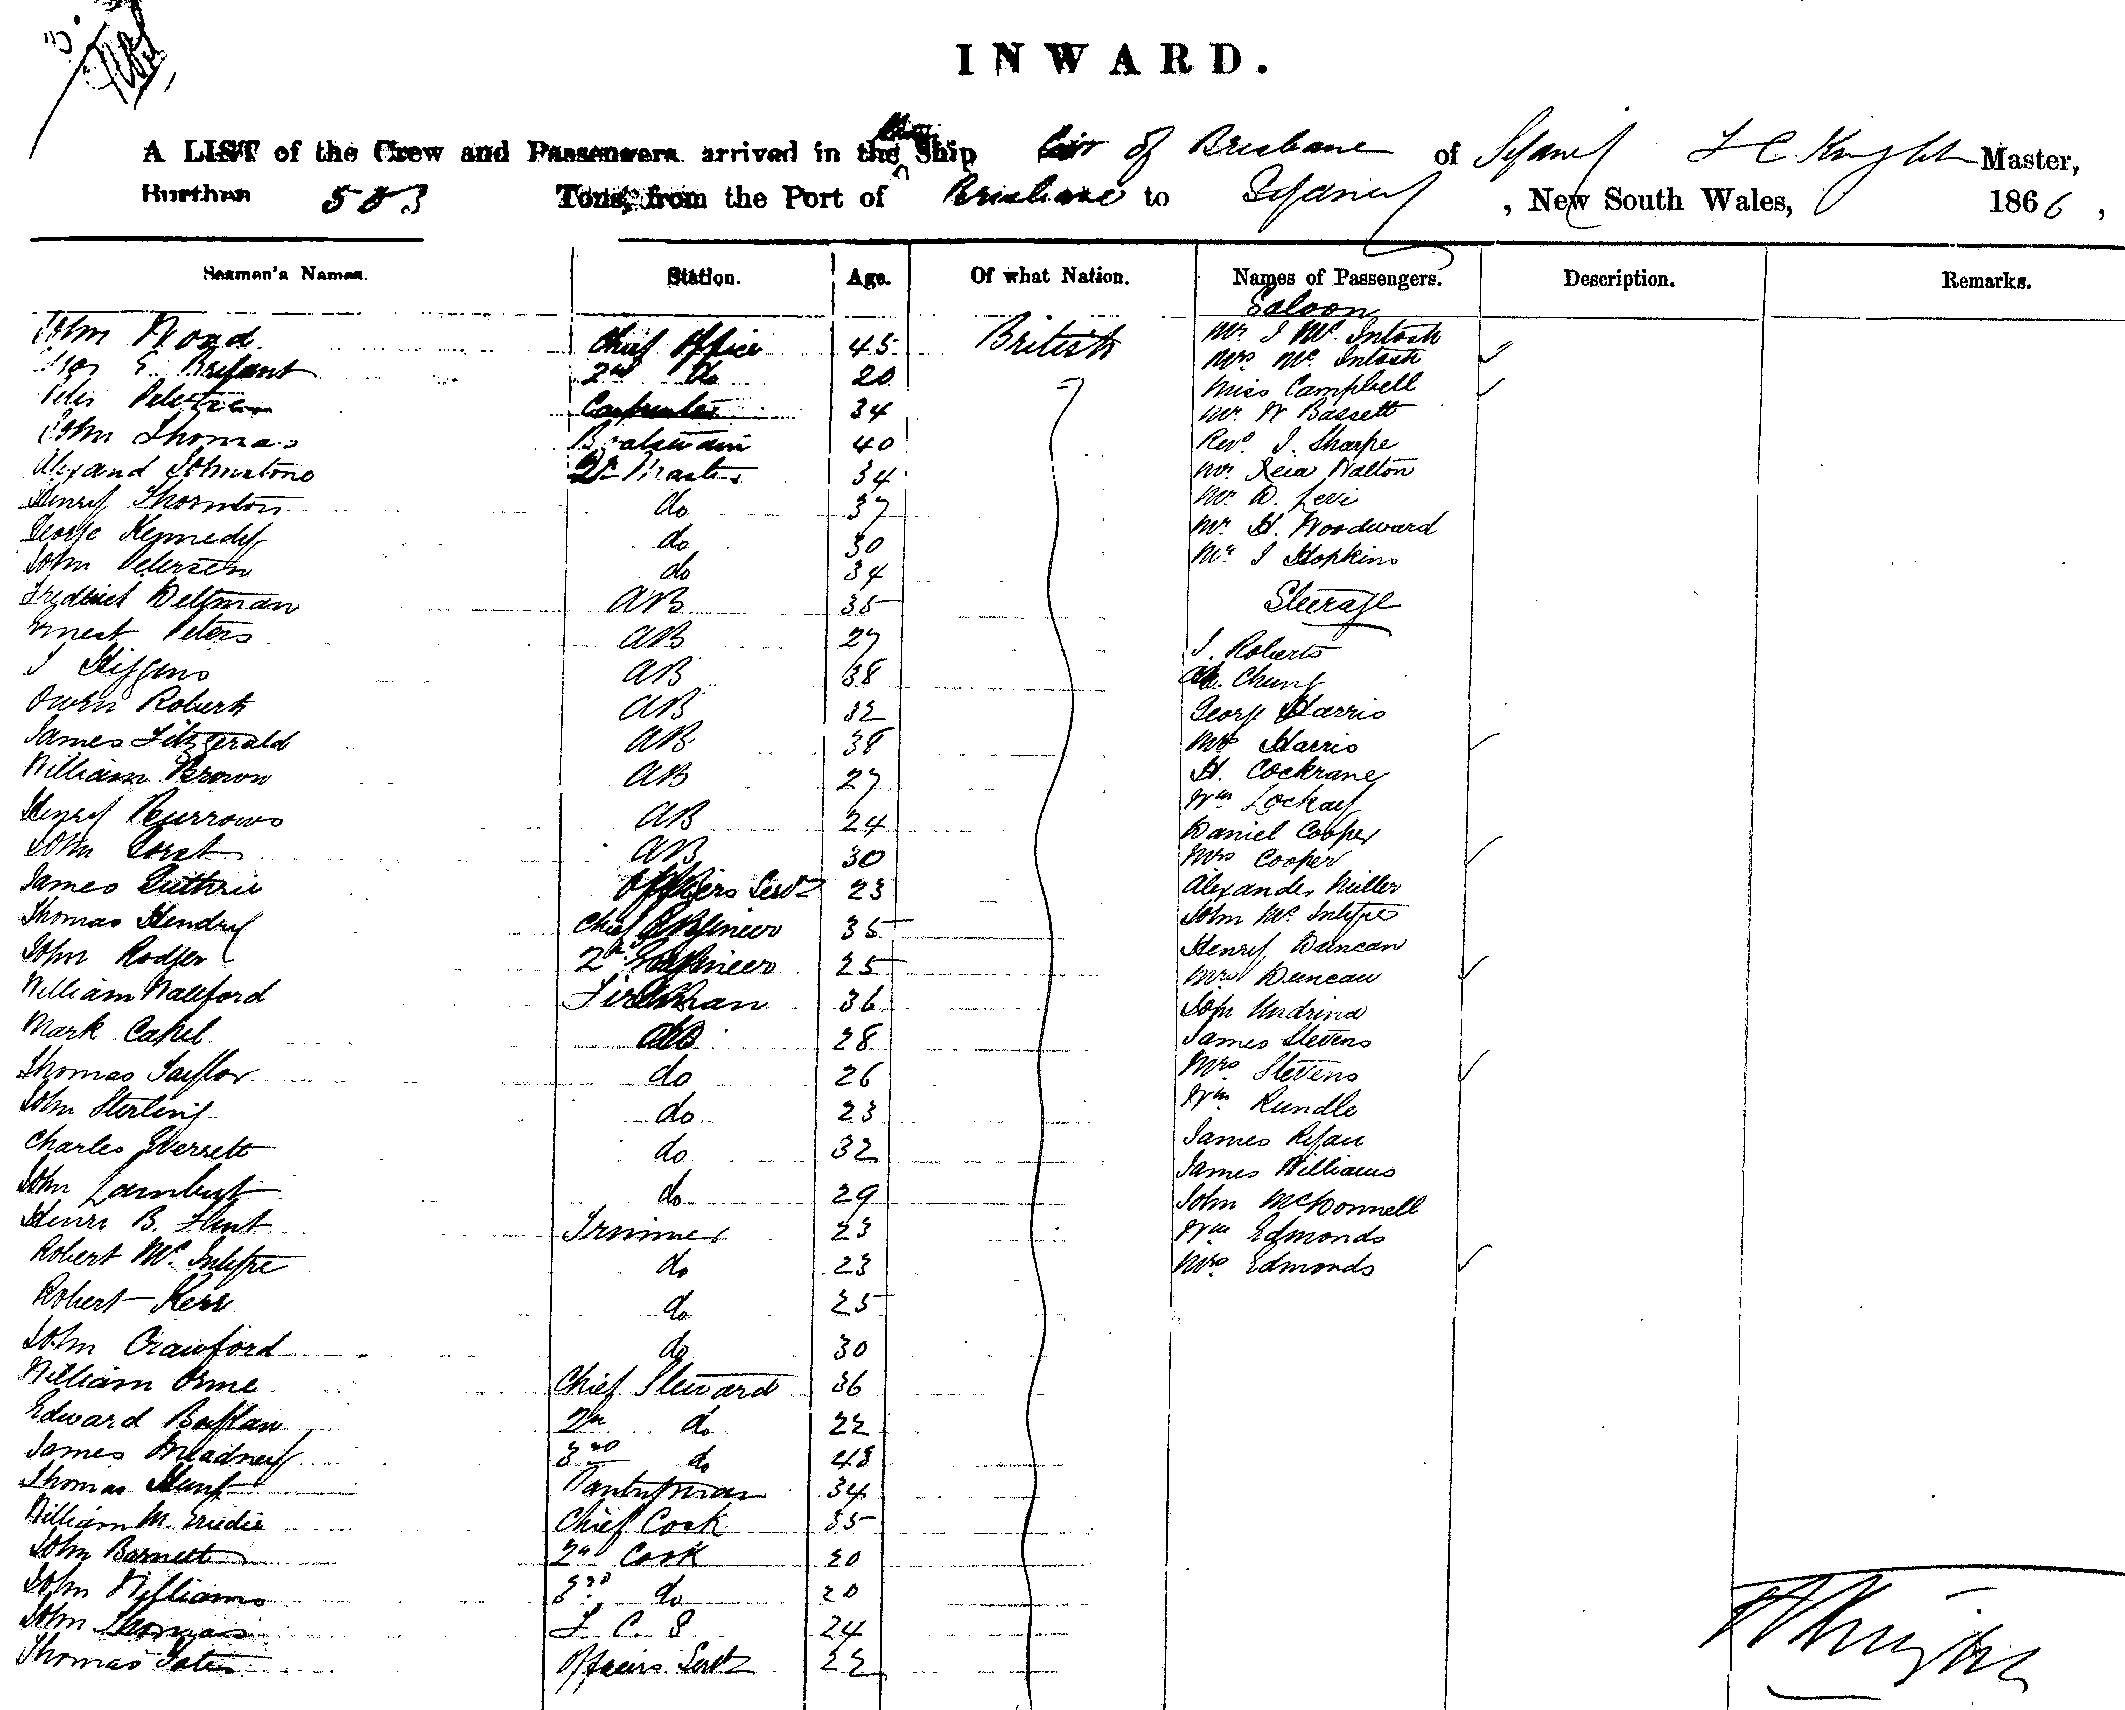 INWARD.
A LIST of the Crew and Passengers arrived in the Ship City of Brisbane of Sydney F C Knight Master,
Burthen 503 Tons, from the Port of Brisbane to Sydney, New South Wales, 1866,
Seamen's Names. Station. Age. Of what Nation. Names of Passengers. Description. Remarks.
Saloon
John Wood Chief Officer 45 British Mr J Mc Intosh
E. Bryant 2nd do 20 Mrs Mc Intosh ✓
Peter Peterson Carpenter 34 Miss Campbell ✓
John Thomas Boatswain 40 Mr W Bassett
Alexand Johnstone Qr Master 34 Revd J. Sharpe
Henry Thornton do 37 Mr Walton
George Kennedy do 30 Mr D. Levi
John Petersen do 34 Mr H. Woodward
Mr J Hopkins
Frederick Deltman AB 35 Steerage
Ernest Peters AB 27
J Higgins AB 38 J. Roberts
Owen Roberts AB 32 Ah. Chung
James Fitzgerald AB 38 George Harris
William Brown AB 27 Mrs Harris ✓
Henry Burrows AB 24 H. Cockrane
John AB 30 Wm Lockay
James Guthrie Officers Servt 23 Daniel Cooper
Thomas Hendry Chief Engineer 35 Mrs Cooper ✓
John Rodger 2nd Engineer 25 Alexander Miller
William Walford Fireman 36 John Mc Intyre
Mark Capel do 28 Henry Duncan
Thomas Taylor do 26 Mrs Duncan ✓
John Sterling do 23 John
Charles Everrett do 32 James Stevens
John Lambert do 29 Mrs Stevens ✓
Henri B. Trimmer 23 Wm Rundle
Robert Mc Intyre do 23 James Ryan
Robert Kerr do 25 James Williams
John Crawford do 30 John McDonnell
William Orme Chief Steward 36 Wm Edmonds
Edward 2nd do 22 Mrs Edmonds ✓
James 3rd do 48
Thomas Pantryman 34
William M. Chief Cook 35
John Barnett 2nd Cook 20
John Williams 3rd do 20
John Thomas F C S 24
Thomas Officers Servt 22